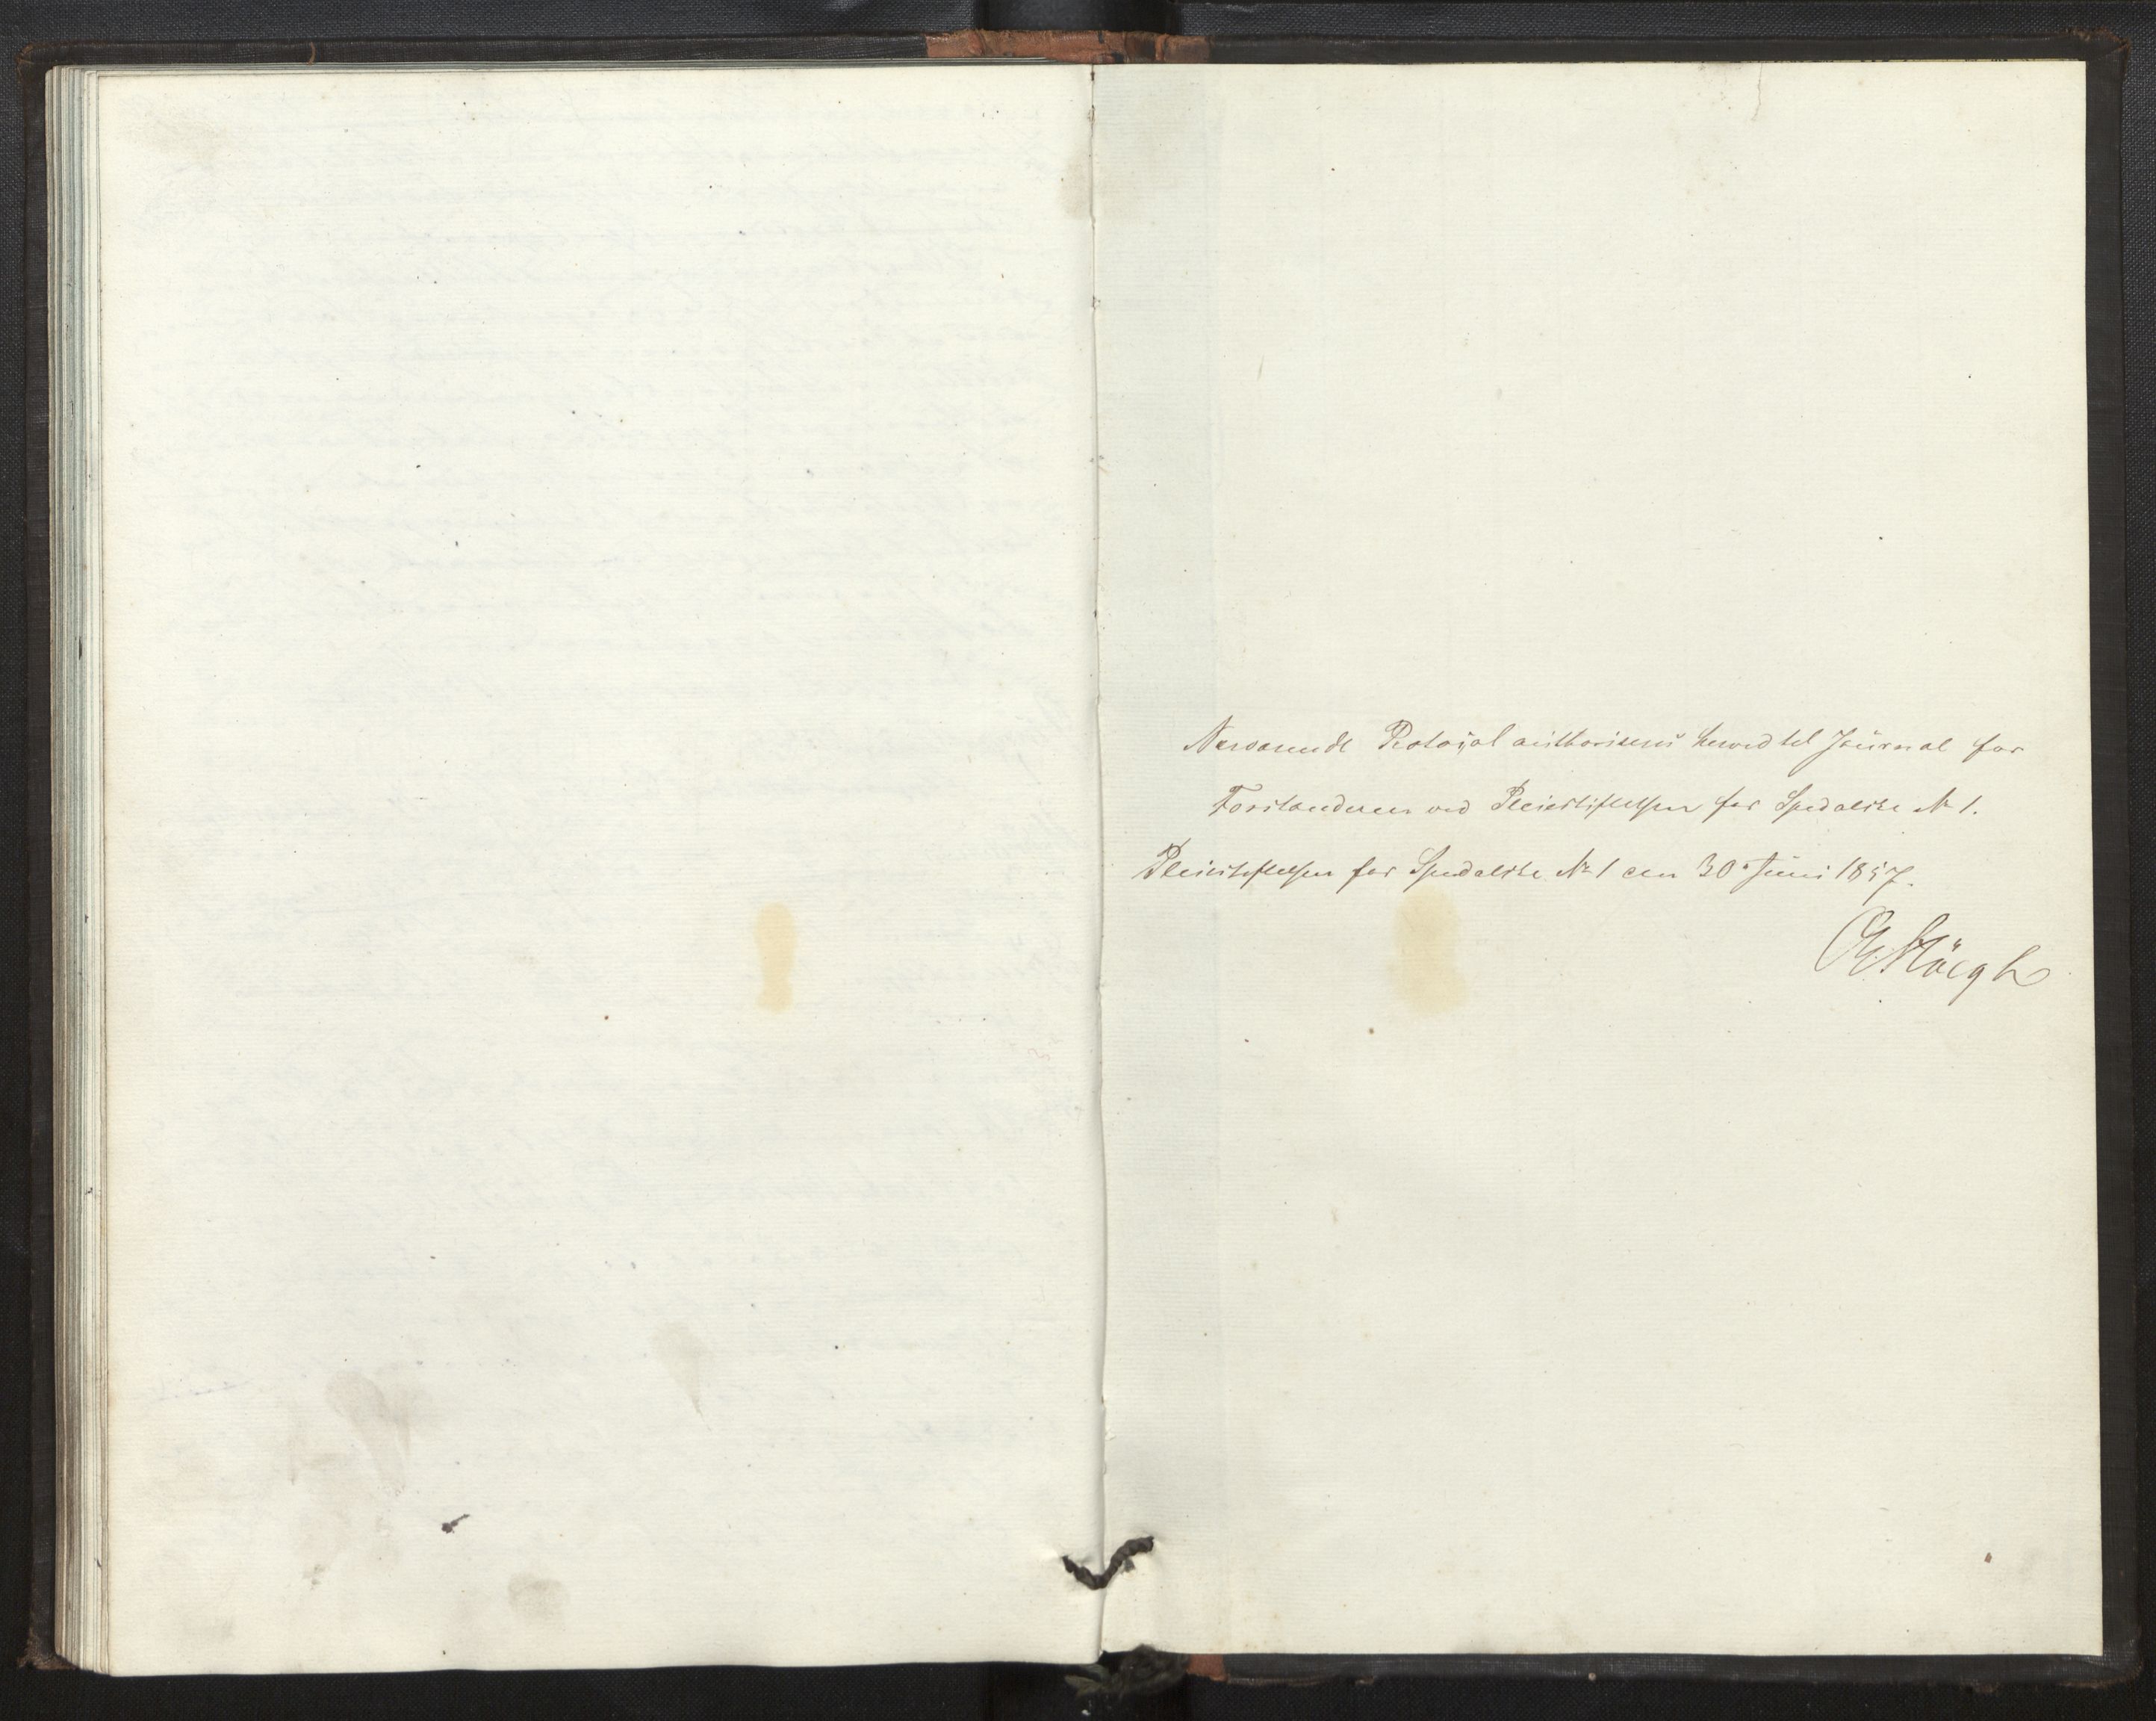 Nærværende Protocol authoriseres herved til Journal for
Forstanderen ved Pleiestiftelsen for Spedalske No 1.
Pleiestiftelsen for Spedalske No 1 den 30 Juni 1857.
Høegh